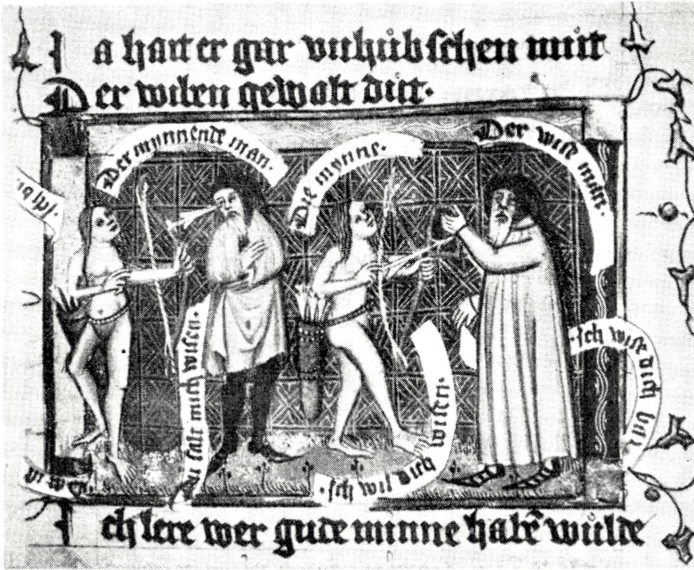 Ja hait er gar vnhubschen mut
Der wilen gewalt dut.
Der mynnende man.
Die mynne.
Der wise man.
salt mich wisen.
Ich wil dich wisen.
Ich wise dich
Ich lere wer gude minne habē wulde